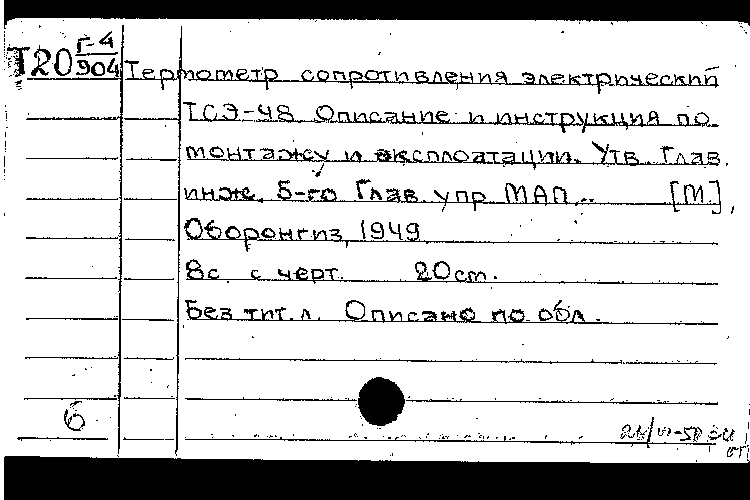 Т20 Г-4/904 Термометр сопротивления электрический
ТСЭ-48. Описание и инструкция по
монтажу и эксплоатации. Утв. Глав.
инж. 5-го Глав. упр МАП.. [М.],
Оборонгиз, 1949
8с с черт. 20cm.
Без тит. л. Описано по обл.
6